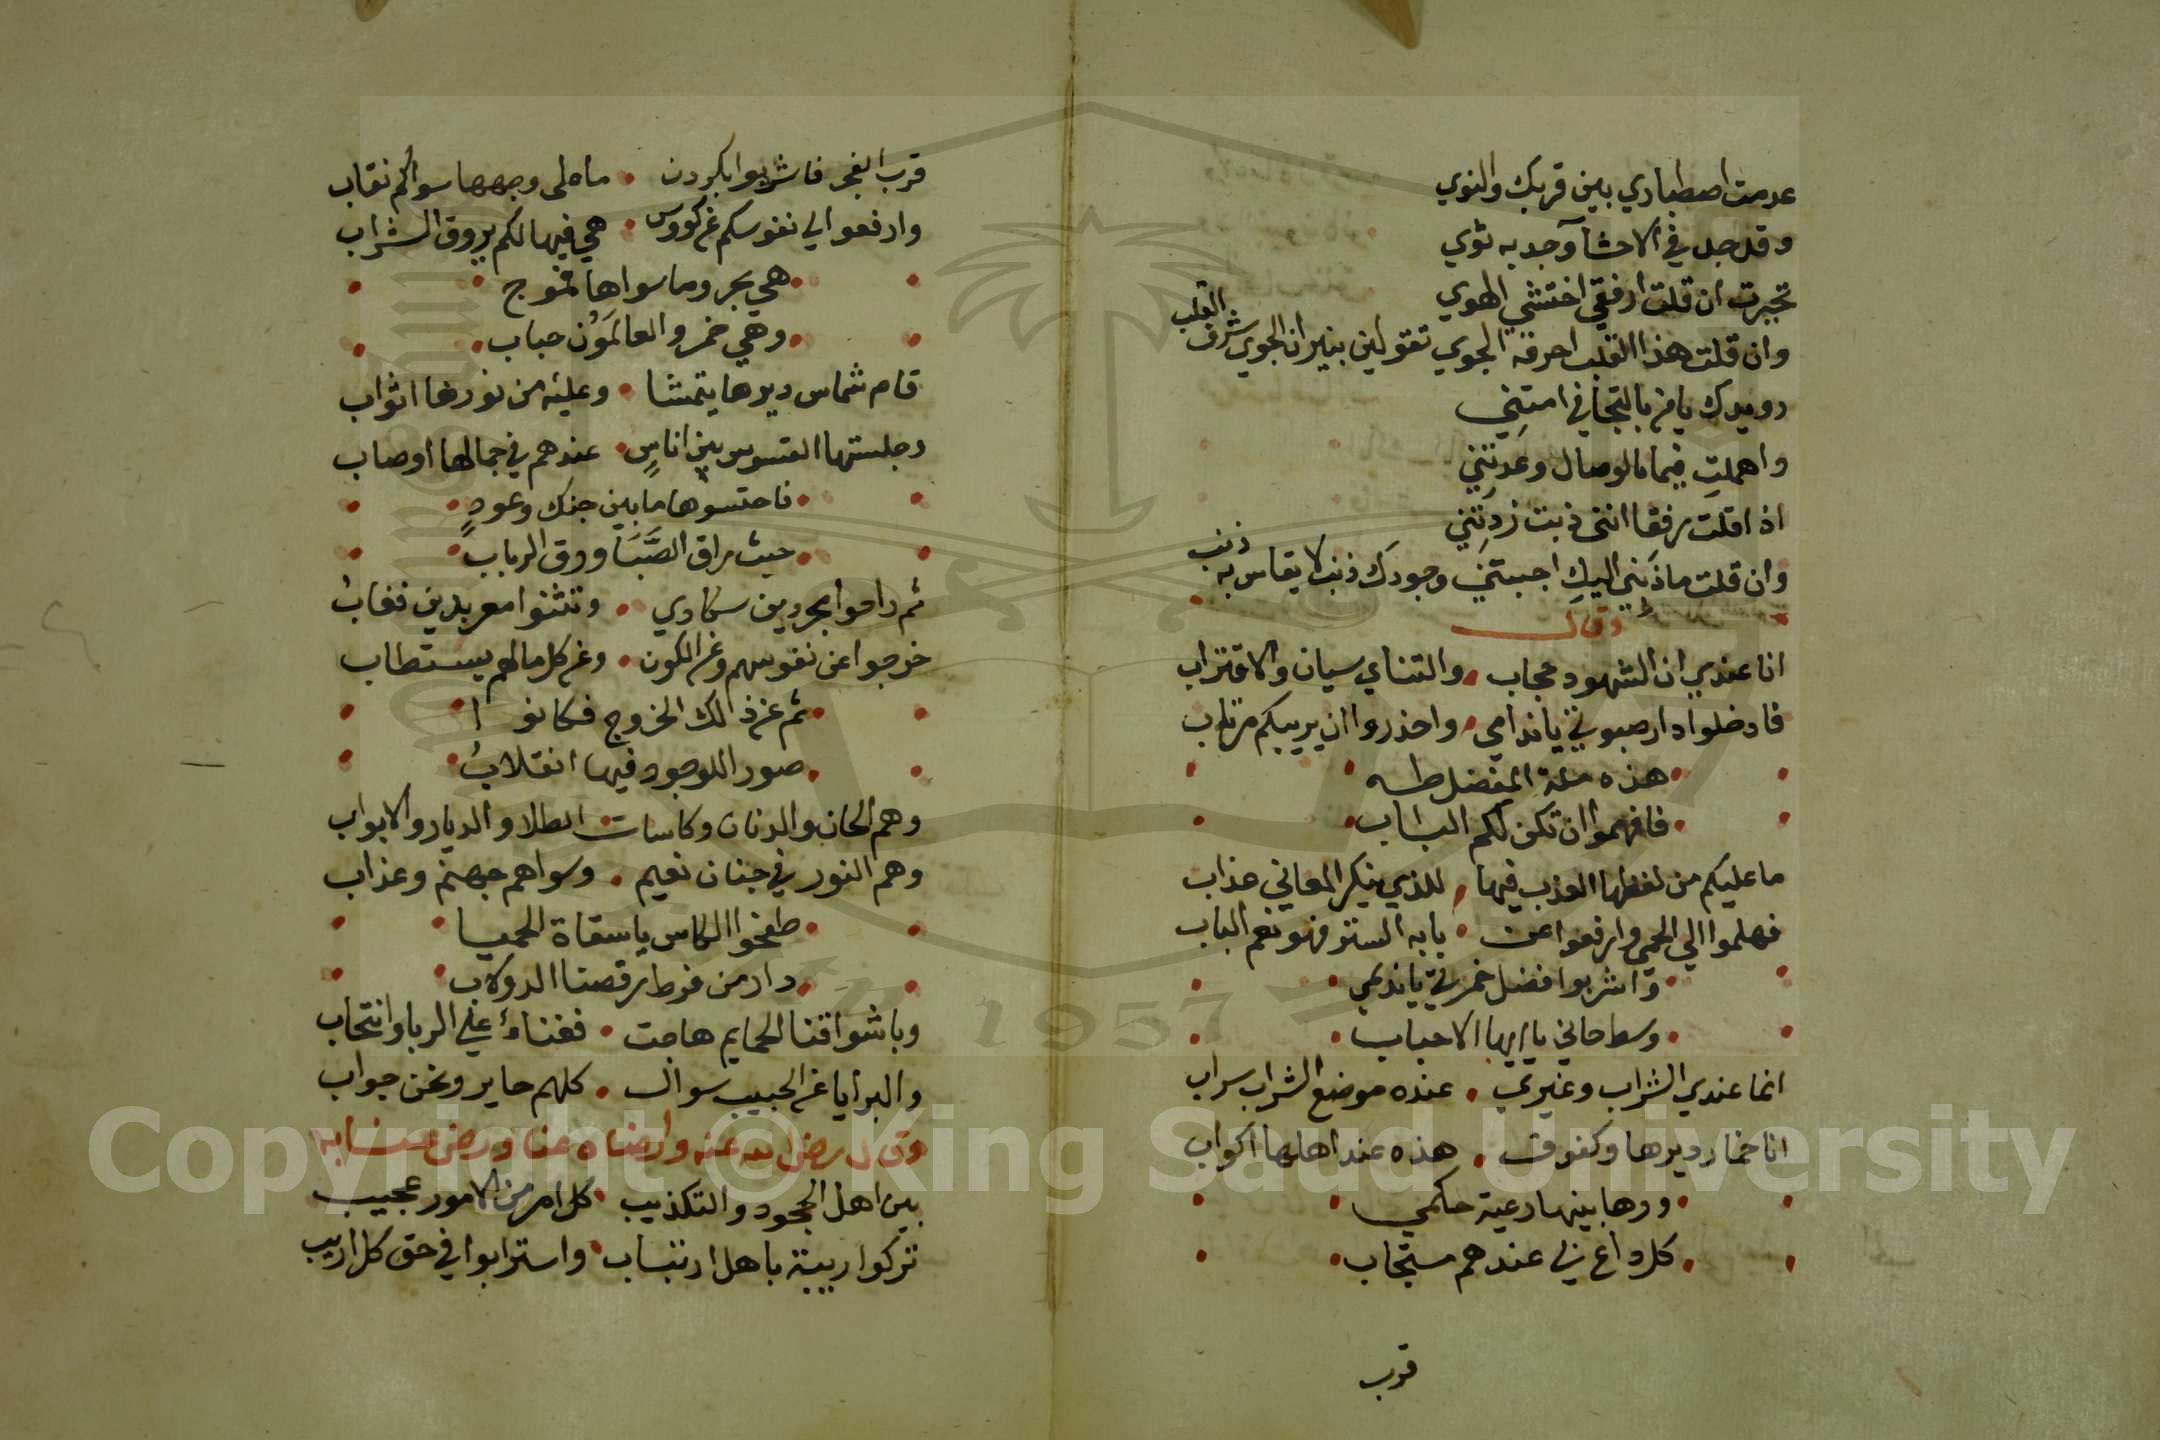 عدمت اصطباري بين قربك والنوي
وقد جد في الاحشآ وجد به ثوي
تحيرت ان قلت ارفقي اختشي الهوي
وان قلت هذا القلب احرقه الجوي تقولين بنيران الجوي شرف القلب
رويدك يا من بالتجافي امتِنِي
واهملتِ فيما بالوصال وعدتِنِي
اذا قلت رفقا انني ذبت زدتِنِي
وان قلت ما ذنبي اليكِ اجبتني وجودك ذنب لا يقاس به ذنب
وقال
انا عندي ان الشهود حجاب والتنائي سيان والاقتراب
فادخلوا دار صبوتي يا ندامي واحذروا ان يريبكم مرتاب
هذه ملة المفضل طه
فافهموا ان تكن لكم الباب
ما عليكم من لفظها العذب فيها للذي ينكر المعاني عذاب
فهلموا الي الحمي وارفعوا عن بابه الستر فهو نعم الباب
واشربوا فضل خمرتي يا ندامي
وسط حاني يا ايها الاحباب
انما عندي الشراب وغيري عنده موضع الشراب سراب
انا خمار ديرها وكفوف هذه عند اهلها اكواب
وودها بينها رعية حكمي
كل داع لي عندهم مستجاب
قرب
قرب الفجر فاشربوا بكر دن ما علي وجهها سواكم نقاب
وارفعوا الي نفوسكم عن كووس هي فيها لكم يروق الشراب
هي بحر وما سواها فموج
وهي خمر والعالَمون حباب
قام شماس ديرها يتمشا وعليه من نورها اثواب
وجلستها القسوس بين اناسٍ عندهم في جمالها اوصاب
فاحتسوها ما بين جنك وعودٍ
حيث راق الصَّبَا ورق الرباب
ثم راحوا بجردين سكاري وتثنوا معربدين فغابُ
خرجوا عن نفوسهم وعن الكون وعن كل ما لهم يستطاب
ثم عن ذالك الخروج فكانوا
صور اللوجود فيها انقلابُ
وهم الحان والدنان وكاسات الطلا والديار والابواب
وهم النور في جنان نعيم وسواهم جهنم وعذاب
طفحوا الكاس يا سقاة الحميا
دار من فرط رقصنا الدولاب
وباشواقنا الحمايم هاجت فغناءُ علي الربا وانتحاب
والبرايا عن الحبيب سوال كلهم حاير ونحن جواب
وقال رضي الله عنه وارضاه عنا ورضي عنا به
بين اهل الجحود والتكذيب كل امر من الامور عجيب
تركوا ريبة باهل ارتياب واسترابوا في حق كل اريب
Copyright © King Saud University
1957